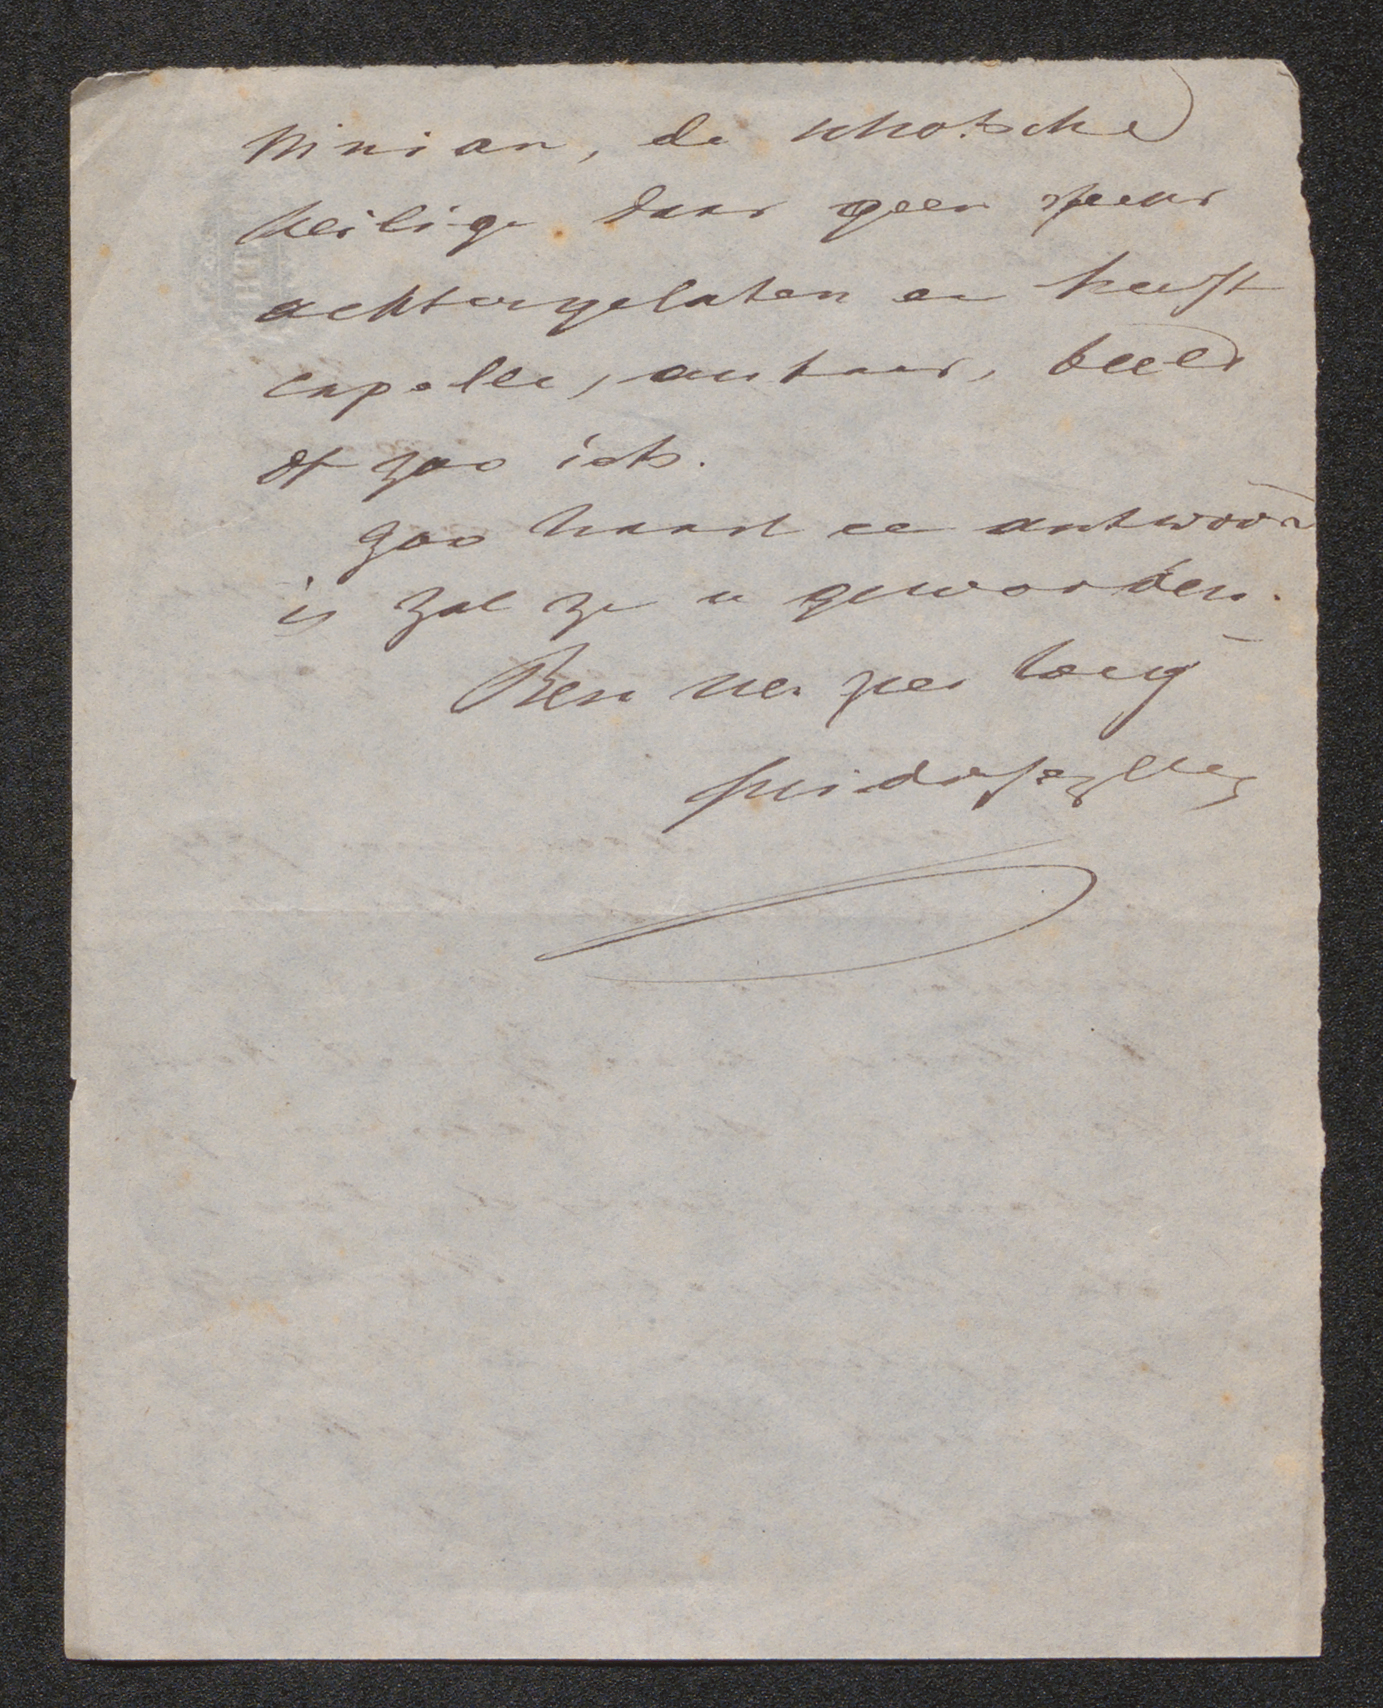 Ninian, de schotsche
heilige daar geen speur
achtergelaten en heeft
capelle, autaar, beeld
of zoo iets.
zoo haast ee antwoord
is zal ze u geworden.
Ben
Guido Gezelle